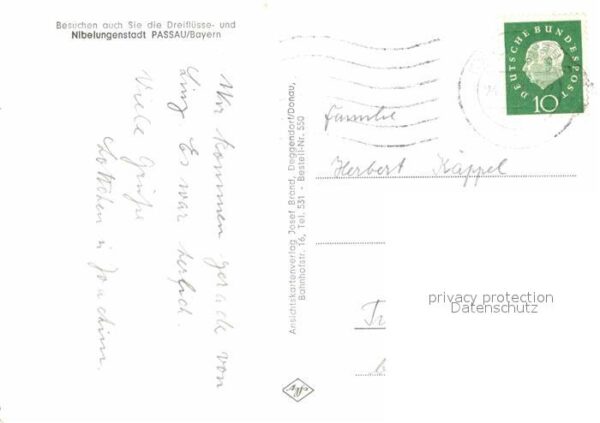 Besuchen auch Sie die Dreiflüsse- und
Nibelungenstadt PASSAU/Bayern
Wir kommen gerade von
Linz. Es war herrlich.
Viele Grüße
Lottchen u. Joachim.
Ansichtskartenverlag Josef Brand, Deggendorf/Donau,
Bahnhofstr. 16, Tel. 531 - Bestell-Nr. 550
DEUTSCHE BUNDESPOST
10
Familie
Herbert Käppel
privacy protection
Datenschutz